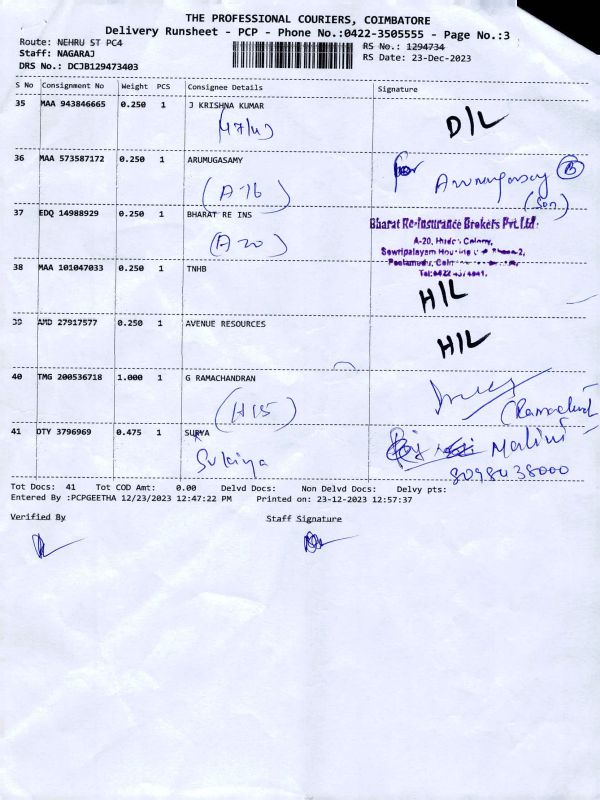 THE PROFESSIONAL COURIERS, COIMBATORE
Delivery Runsheet - PCP - Phone No.:0422-3505555 - Page No.:3
Route: NEHRU ST PC4
RS No.: 1294734
Staff: NAGARAJ
RS Date: 23-Dec-2023
DRS No.: DCJB129473403
S No Consignment No Weight PCS Consignee Details Signature
35 MAA 943846665 0.250 1 J KRISHNA KUMAR
D/L
36 MAA 573587172 0.250 1 ARUMUGASAMY
(A-16)
for Arumugasamy (B)
(Son)
37 EDQ 14988929 0.250 1 BHARAT RE INS
(A 20)
Bharat Re-Insurance Brokers Pvt.Ltd.
A-20,
Sowripalayam
38 MAA 101047033 0.250 1 TNHB
H/L
39 AMD 27917577 0.250 1 AVENUE RESOURCES
H/L
40 TMG 200536718 1.000 1 G RAMACHANDRAN
(H15)
41 DTY 3796969 0.475 1 SURYA
Sukriya
Malini
8098438000
Tot Docs: 41 Tot COD Amt: 0.00 Delvd Docs: Non Delvd Docs: Delvy pts:
Entered By :PCPGEETHA 12/23/2023 12:47:22 PM Printed on: 23-12-2023 12:57:37
Verified By Staff Signature